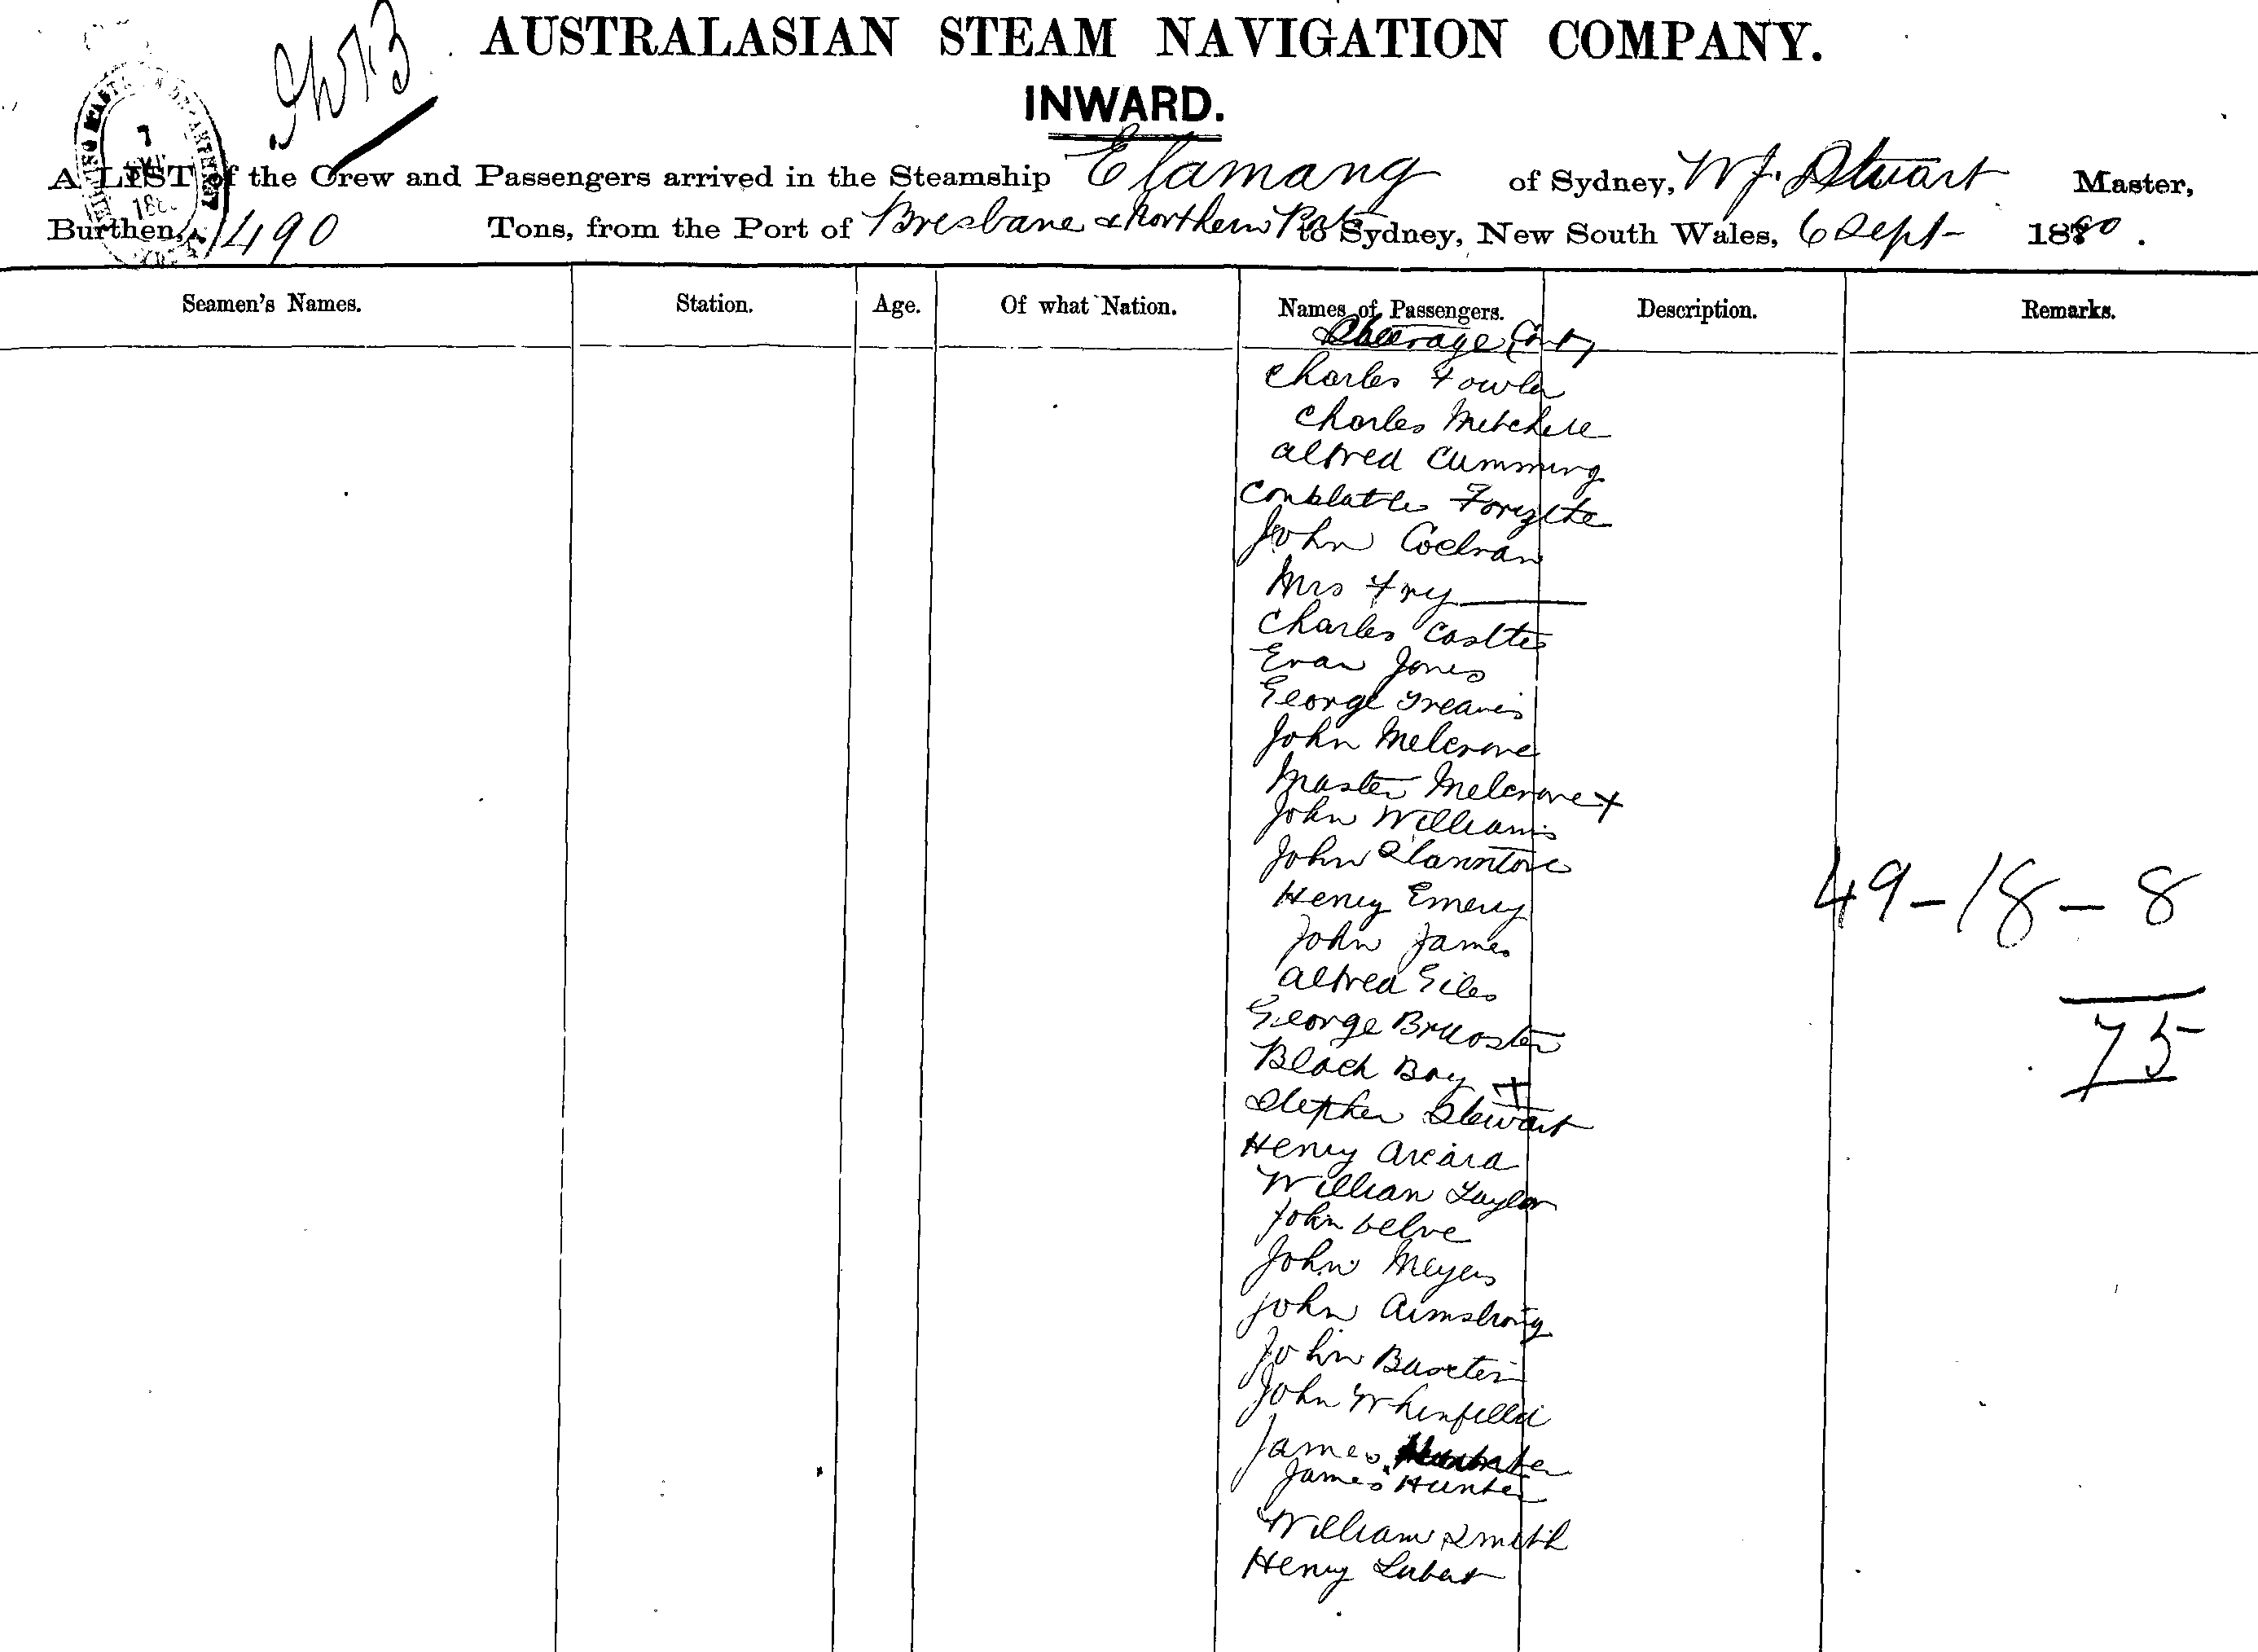 AUSTRALASIAN STEAM NAVIGATION COMPANY.
INWARD.
A LIST of the Crew and Passengers arrived in the Steamship Elamang of Sydney, W J. Stuart Master,
Burthen, 1490 Tons, from the Port of Brisbane & Northern Ports to Sydney, New South Wales, 6 Sept 1880.
Seamen's Names. Station. Age. Of what Nation. Names of Passengers. Description. Remarks.
Steerage Contd
Charles Fowler
Charles Mitchell
Alfred Cumming
Forsythe
John Cochran
Mrs Fry
Charles
Evan Jones
George Greaves
John Melcrove
Master Melcrove +
John Williams
John
Henry Emery
John James
Alfred Giles
George
Black Boy +
Stephen Stewart
Henry
William Taylor
John
John Meyers
John Armstrong
John Baxter
John Whinfield
James
James Hunter
William Smith
Henry
49-18-8
75